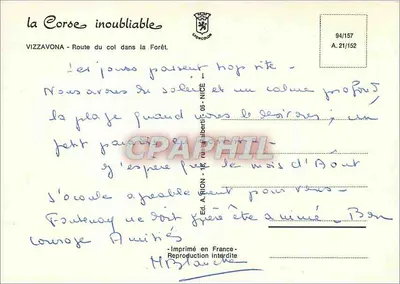 la Corse inoubliable
VIZZAVONA - Route du col dans la Forêt.
94/157
A. 21/152
Les jours passent trop vite -
Nous avons du soleil et un calme profond
la plage quand nous le désirons ; un
petit paradis
J'espère que le mois d'Août
s'écoule agréablement pour vous -
Fontenay ne doit guère être animé - Bon
courage Amitiés
MBlanche
Ed. A. RION - 05 - NICE
CARAPHIL
-Imprimé en France-
Reproduction interdite